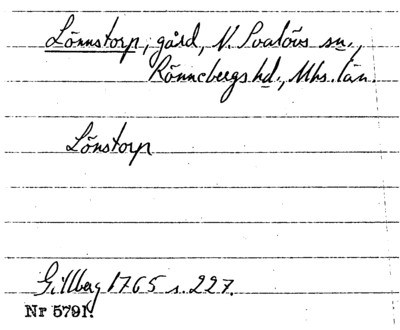 Lönnstorp, gård, N. Svalövs sn.,
Rönnebergs hd., Mhs. län.
Lönstorp
Gillberg 1765 s. 227.
Nr 5791.